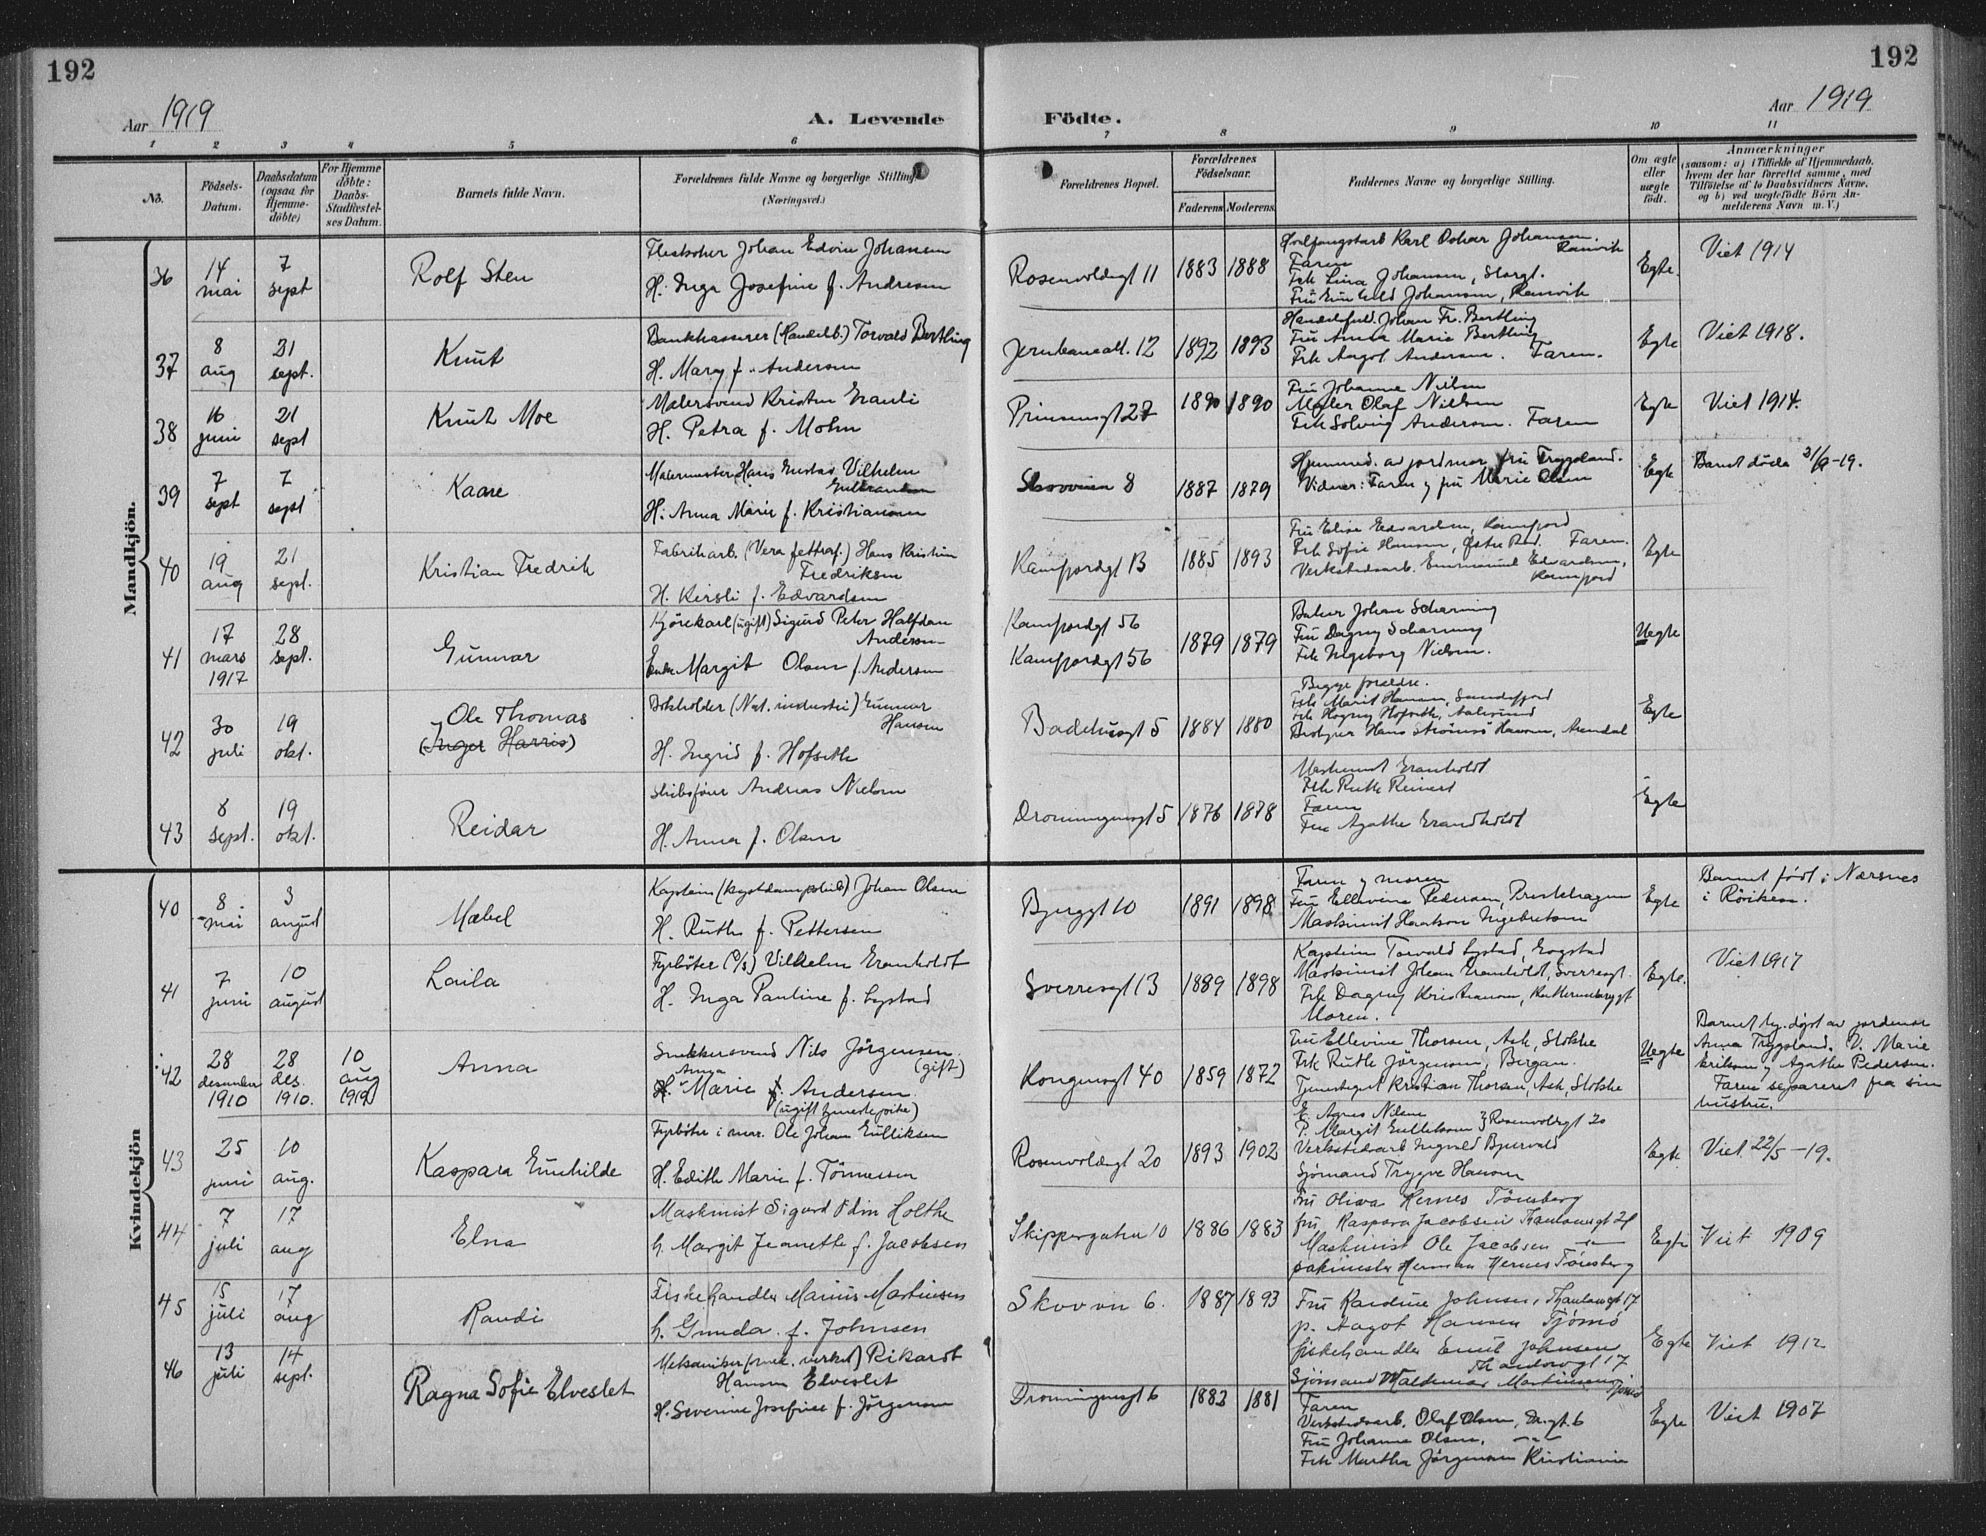 192
192
Aar 1919
A. Levende
Födte.
Aar 1919
1 2 3 4 5 6 7 8 9 10 11
No.
Födsels-Datum.
Daabsdatum (ogsaa för Hjemme-döbte)
For Hjemme döbte: Daabs-Stadfæstel-ses Datum.
Barnets fulde Navn.
Forældrenes fulde Navne og borgerlige Stilling
(Næringsvei.)
Forældrenes Bopæl.
Forældrenes Födselsaar.
Faderens Moderens
Faddernes Navne og borgerlige Stilling.
Om ægte eller uægte födt.
Anmærkninger
(saasom: a) i Tilfælde af Hjemmedaab,
hvem der har forrettet samme, med
Tilföielse af to Daabsvidners Navne,
og b) ved uægtefödte Börn An-
melderens Navn m. V.)
Mandkjön.
36 14 mai 7 sept Rolf Sten
Johan Edvin Johansen
H. Inga Josefine f. Andresen
Rosenvoldgt 11 1883 1888
Karl Oskar Johansen, Ranvik
Faren
Frk Lina Johansen, Storgt.
Fru Gunhild Johansen, Ranvik
Egte. Viet 1914
37 8 aug 21 sept. Knut
Bankkasserer (Handelsb.) Torvald Bertling
H. Mary f. Andersen
Jernbaneall. 12 1892 1893
Johan Fr. Bertling
Fru Anna Marie Bertling
Frk Aagot Andersen. Faren.
Egte Viet 1918.
38 16 juni 21 sept Knut Moe
Malersvend Kristen Granli
H. Petra f. Mohn
Prinsensgt 27 1890 1890
Fru Johanne Nilsen
Maler Olaf Nielsen
Frk Solveig Andersen. Faren
Egte Viet 1914.
39 7 sept 7 sept Kaare
Malermester Hans Gustav Vilhelm
Gulbrandsen
H. Anna Marie f. Kristiansen
Skovveien 8 1887 1879
Hjemmed. av jordmor fru Trygsland.
Vidner: Faren og fru Marie Olsen
Egte Barnet døde 21/9-19.
40 19 aug 21 sept. Kristian Fredrik
Fabrikarb. (Vera fettraf.) Hans Kristian
Fredriksen
H. Kirsti f. Edvardsen
Kamfjordgt 13 1885 1893
Fru Elise Edvardsen, Kamfjord
Frk Sofie Hansen, Østre Rød. Faren.
Verkstedsarb. Emmanuel Edvardsen,
Kamfjord
Egte
41 17 mars 1917 28 sept. Gunnar
Kjørekarl (ugift) Sigurd Peter Halfdan
Andersen
Enke Margit Olsen f. Andersen
Kamfjordgt 56
Kamfjordgt 56
1879 1879
Baker Johan Scharning
Fru Dagny Scharning
Frk Ingeborg Nielsen.
Uegte
42 30 juli 19 okt. Ole Thomas
(Inger Harris)
Bokholder (Nat. industri) Gunnar
Hansen
H. Ingrid f. Hofseth
Badehusgt 5 1884 1880
Begge foreldre.
Frk Marit Hansen, Sandefjord
Frk Hofseth, Aalesund
Hans Hansen, Arendal
Egte
43 8 sept. 19 okt. Reidar
Skibsfører Andreas Nielsen
H. Anna f. Olsen
Dronningensgt 5 1876 1878
Maskinist Granholdt
Frk Ruth Reinert
Faren
Fru Agathe Grandholdt
Egte
Kvindekjön
40 8 mai 3 august Mabel
Kaptein (kystdampskib) Johan Olsen
H. Ruth f. Pettersen
Bjerggt 10 1891 1898
Faren og moren
Fru Ellevine Pedersen, Prestehagen
Maskinist Haakon Ingebretsen
Egte Barnet født i Nærsnes
i Röiken.
41 7 juni 10 august Laila
Fyrbøter (D/s) Vilhelm Granholdt
H. Inga Pauline f. Lystad
Sverresgt 13 1889 1898
Kaptein Torvald Lystad, Gogstad
Maskinist Johan Granholdt, Sverresgt.
Frk Dagny Kristiansen,
Moren.
Egte. Viet 1917
42 28 desember 1910 28 des. 1910. 10 aug 1919 Anna
Snekkersvend Nils Jörgensen.
(gift)
Anna
H. Marie f. Andersen
(ugift tjenestepike)
Kongensgt 40 1859 1872
Fru Ellevine Thorsen, Ask, Stokke
Frk Ruth Jörgensen, Bergan.
Kristian Thorsen, Ask, Stokke
Uegte
Barnet hj.døpt av jordmor
Anna Trygsland. V. Marie
Eriksen og Agathe Pedersen.
Faren separeret fra sin
hustru.
43 25 juni 10 aug. Kaspara Gunhilde
Fyrbøter i mar. Ole Johan Gulliksen
H. Edith Marie f. Tönnessen
Rosenvoldgt 20 1893 1902
F. Agnes Nilsen
F. Margit Gulliksen } Rosenvoldgt 20
Verkstedsarb Ingvald Bjervald
Sjömand Trygve Hansen
Egte Viet 22/5-19.
44 7 juli 17 aug Elna
Maskinist Sigurd Odin Holthe
h. Margit Jeanette f. Jacobsen
Skippergaten 10 1886 1883
Fru Oliva Hernes Tönsberg
fru Kaspara Jacobsen Thaulowsgt 21
Maskinist Ole Jacobsen —"—
Herman Hernes Tönsberg
Egte Viet 1909
45 15 juli 17 aug Randi
Fiskehandler Marius Martinsen
h. Gunda f. Johnsen
Skovvn 6. 1887 1893
Fru Karoline Johnsen, Thaulowgt 17
p. Aagot Hansen Tjömö
fiskehandler Emil Johnsen
Thaulowgt 17
Sjömand Waldemar Martinsen Tjömö
Egte Viet 1912
46 13 juli 14 sept. Ragna Sofie Elveslet
Mekaniker (mek. verkst) Rikardt
Hansen Elveslet
H. Severine Josefine f. Jörgensen
Dronningensgt 6 1883 1881
Faren
Verkstedsarb. Olaf Olsen, Dr.gt. 6
Fru Johanne Olsen, —"—
Frk Martha Jörgensen Kristiania
Egte Viet 1907